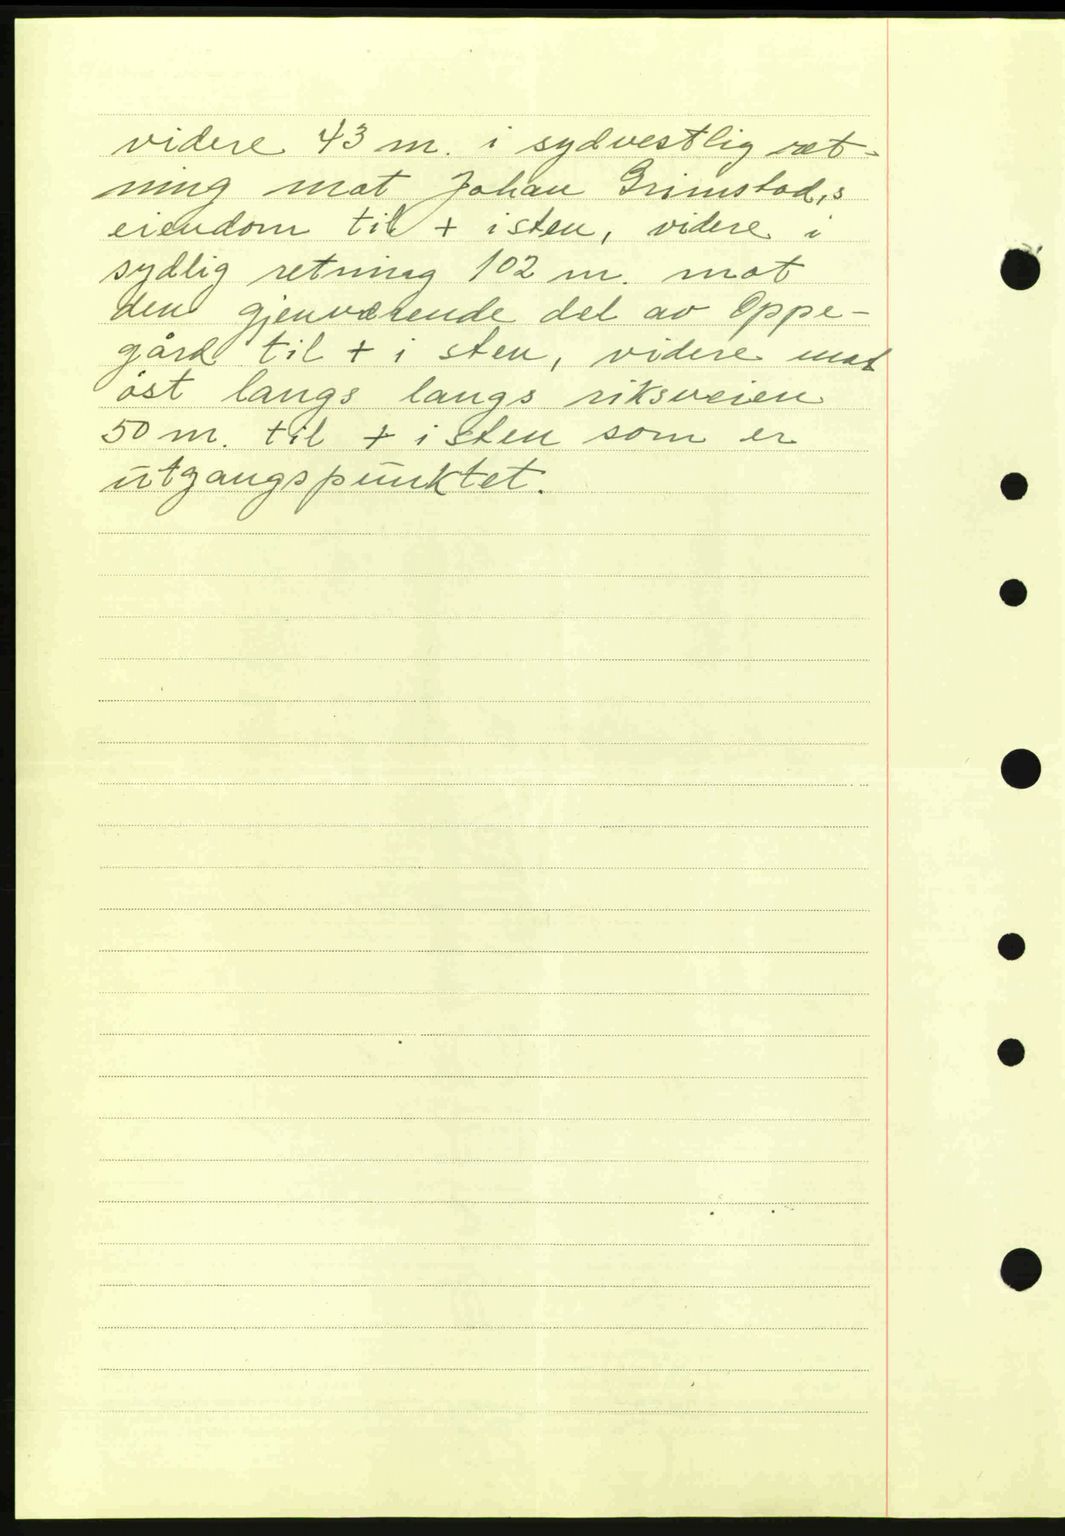 videre 43 m. i sydvestlig ret-
ning mot Johan Grimstad,s
eiendom til + i sten, videre i
sydlig retning 102 m. mot
den gjenværende del av Oppe-
gård til + i sten, videre mot
öst langs langs riksveien
50 m. til + i sten som er
utgangspunktet.